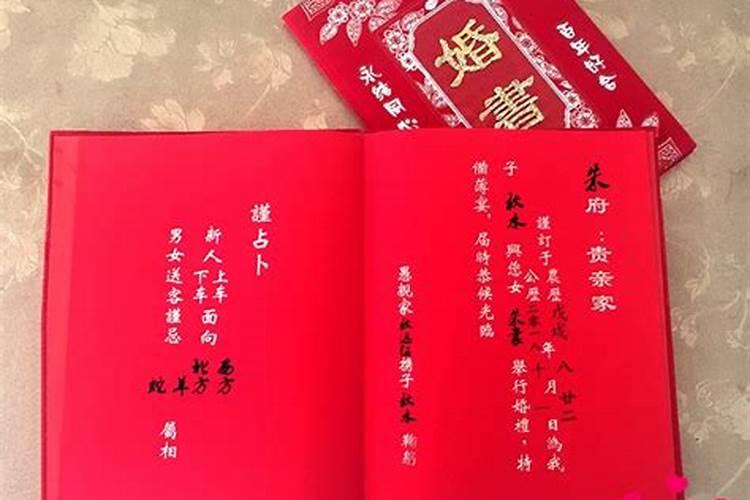 婚書
百年好合
永結同
朱府：贵亲家
謹訂于農歷戊戌年八月廿二日為我
公歷二零一八 十 一
子秋木與您女朱 舉行婚禮，特
備薄宴，届時恭候光臨
愚親家秋 携子秋木鞠躬
謹占卜
新人上车面向西方
下车 北方
男女送客謹忌蛇羊屬相